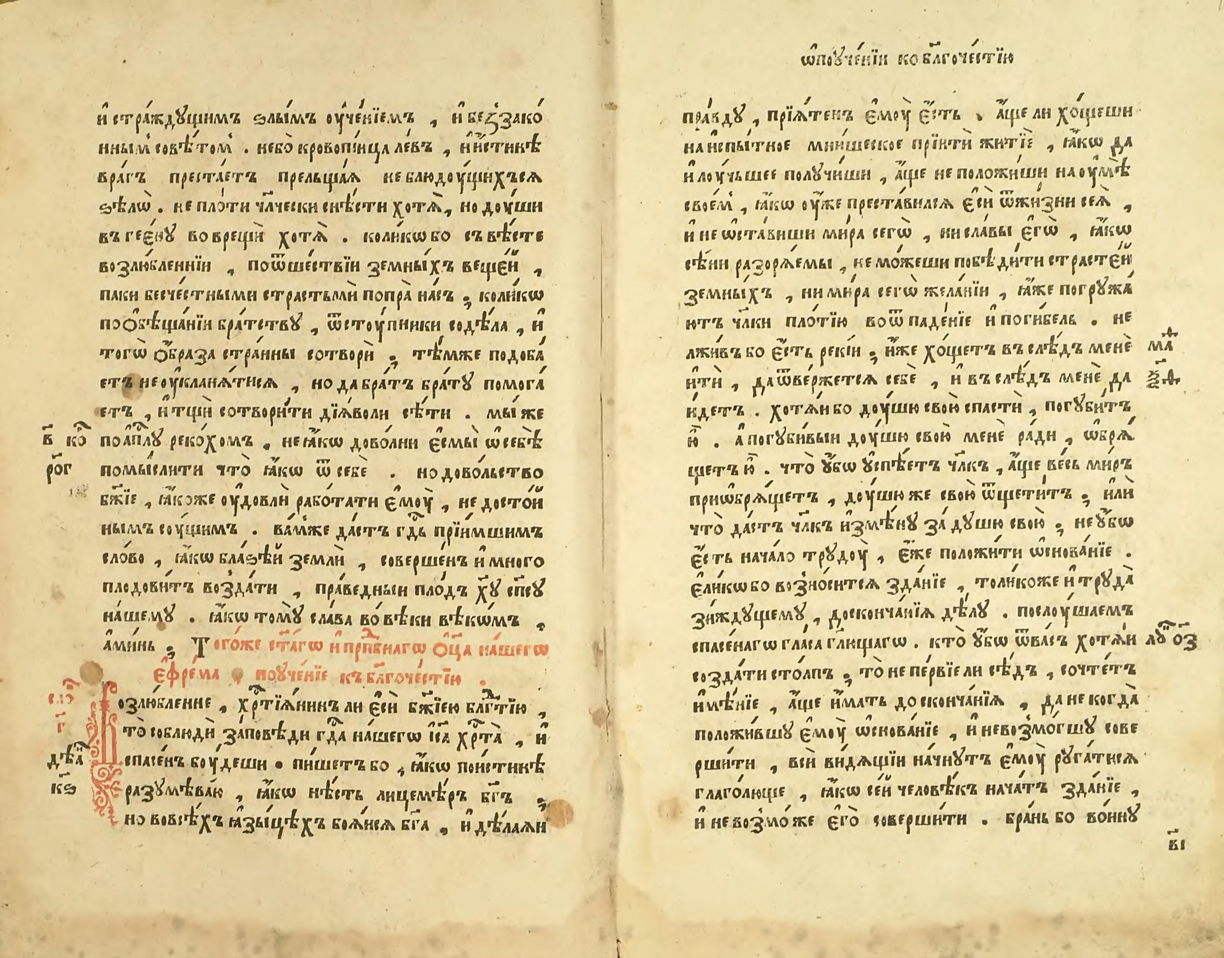 и҆ стра́ждꙋщимъ ѕлы́мъ оу҆че́нїемъ , и҆ беꙁзако
нны́м совѣ́том . небо̀ кровопі́ица ле́въ , и҆ и҆́стинѣ
вра́гъ преста́етъ прельща́ѧ неблюдоу́щихъсѧ
ѕѣлѡ̀ . не пло́ти чл҃чески снѣ́сти хотѧ̀ , но доуши
въ гее́нꙋ воврещѝ хотѧ̀ . коли́кѡ бо съвѣ́сте
возлю́бленнїи , поѿше́ствїи земны́хъ веще́й ,
паки бесче́стными страстьмѝ попра̀ на́съ ; коли́кѡ
поѻбѣща́нїи бра́тствꙋ , ѿстоу́пники содѣ́ла , и҆
тогѡ̀ ѻ҆́браза стра́нны сотворѝ ; тѣ́мже подоба́
етъ не оу҆кланѧ́тисѧ , но да бра́тъ бра́тꙋ помога́
етъ , и҆ тщи̑ сотвори́ти дїѧ́воли сѣ́ти . мы́ же
в҃ ко поап҃лꙋ реко́хомъ , не ꙗ҆́кѡ дово́лни є҆смы̀ ѡ҆ себѣ̀
рог помы́слити что̀ ꙗ҆́кѡ ѿ себѐ . но дово́льство
бж҃їе , ꙗ҆́коже оу҆довлѝ рабо́тати є҆моу̀ , не досто́й
нымъ соу́щимъ . ва́мже да́стъ гд҃ь прїи́мшимъ
сло́во , ꙗ҆́кѡ бла́ѕѣй землѝ , соверше́нъ и҆ мно́го
плодови́тъ возда́ти , пра́ведныи пло́дъ хꙋ҃ сп҃сꙋ
на́шемꙋ . ꙗ҆́кѡ томꙋ̀ сла́ва во вѣ́ки вѣкѡ́мъ ,
а҆ми́нь ; Того́же ст҃а́гѡ и҆ прп҃бнагѡ ѻ҆ц҃а на́шегѡ
є҆фре́ма поуче́нїе къ бл҃гоче́стїю .
Возлю́бленне , хрⷭ҇тїѧ́нинъ ли є҆сѝ бж҃їею бл҃гⷣтїю ,
то̀ соблюдѝ за́повѣди гдⷭ҇а на́шегѡ і҆с҃а хрⷭ҇та̀ , и҆
дѣѧ спасе́нъ боу́деши . пи́шетъ бо , ꙗ҆́кѡ пои́стинѣ
к҃ѳ разꙋмѣва́ю , ꙗ҆́кѡ нѣ́сть лицемѣ́ръ бг҃ъ ;
но вовсѣ́хъ ꙗ҆зы́цѣхъ боѧ́исѧ бг҃а , и҆ дѣ́лаѧи
ѡ҆поуче́нїи ко бл҃гоче́стїю
пра́вдꙋ , прїѧ́тенъ є҆моу̀ є҆́сть , а҆́ще ли хо́щеши
на испы́тное мни́шеское прїити житїѐ , ꙗ҆́кѡ да
и҆ лоу́чьшее получи́ши , а҆́ще не положи́ши на оу҆мѣ̀
свое́м , ꙗ҆́кѡ оу҆́же преста́вилсѧ є҆сѝ ѿ жи́зни сеѧ̀ ,
и҆ не ѡ҆ста́виши ми́ра сегѡ̀ , ни сла́вы є҆гѡ̀ , ꙗ҆́кѡ
сѣ́ни разорѧ́емы , не мо́жеши побѣди́ти страсте́й
земны́хъ , ни ми́ра сегѡ̀ жела́нїи , ꙗ҆́же погрꙋжа́
ютъ чл҃ки пло́тїю во ѿпаде́нїе и҆ поги́бель . не
лжи́въ бо є҆́сть реки́и ; и҆́же хо́щетъ въ слѣ́дъ менѐ мⷴ҇а
и҆ти̑ , да ѿве́ржетсѧ себѐ , и҆ въ слѣ́дъ менѐ да ѯ҃ѳ
и҆де́тъ . хотѧ́и бо доу́шю свою̀ спасти̑ , погꙋ́битъ
ю҆̀ . а҆ погꙋби́выи доу́шю свою̀ менѐ ра́ди , ѡ҆брѧ́
щетъ ю҆̀ . что̀ ꙋ҆́бѡ ꙋ҆спѣ́етъ чл҃къ , а҆́ще ве́сь ми́ръ
приѡбрѧ́щетъ , доу́шю же свою̀ ѿщети́тъ ; и҆лѝ
что̀ да́стъ чл҃къ и҆змѣ́нꙋ за̀ дꙋшю свою̀ ; не ꙋ҆́бѡ
є҆́сть нача́ло трꙋдоу̀ , є҆́же положи́ти ѡ҆снова́нїе .
є҆ли́кѡ бо возно́ситсѧ зда́нїе , толи́коже и҆ трꙋда̀
зи́ждꙋщемꙋ , до сконча́нїѧ дѣ́лꙋ . послоу́шаемъ
спасе́нагѡ гла́са гл҃ющагѡ . кто̀ ꙋ҆́бѡ ѿ ва́съ хотѧ́и лꙋ ѻ҃з
созда́ти сто́лпъ ; то̀ не пе́рвїе ли сѣ́дъ , сочте́тъ
и҆мѣ́нїе , а҆́ще и҆́мать до сконча́нїѧ , да не когда̀
положи́вшꙋ є҆моу̀ ѡ҆снова́нїе , и҆ невозмо́гшꙋ сове
рши́ти , всѝ ви́дѧщїи начнꙋ́тъ є҆моу̀ рꙋга́тисѧ
глаго́люще , ꙗ҆́кѡ се́й человѣ́къ нача́тъ зда́нїе ,
и҆ не возмо́же є҆гѡ̀ соверши́ти . бра́нь бо во́инꙋ
в҃і